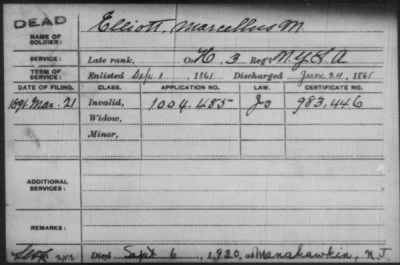 DEAD
NAME OF SOLDIER: Elliott, Marcellus M.
SERVICE: Late rank, Co. H. 3 Reg't N.Y.L.A
TERM OF SERVICE: Enlisted Sep. 1 1861 Discharged June 24, 1865
DATE OF FILING. CLASS. APPLICATION NO. LAW. CERTIFICATE NO.
1891 Mar. 21 Invalid, 1004.485 Jo 983,446
Widow,
Minor,
ADDITIONAL SERVICES:
REMARKS:
Died Sept 6, 1920, at Manahawkin, N.J.